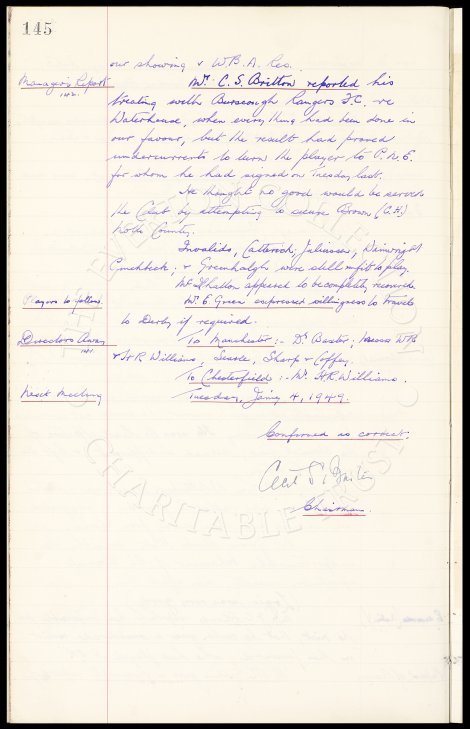 145
our showing v W.B.A. Res.
Manager's Report
Mr. C. S. Britton reported his
treating with Burscough Rangers F.C. re
Waterhouse, when everything had been done in
our favour, but the result had proved
undercurrents to turn the player to P.N.E.
for whom he had signed on Tuesday last.
He thought no good would be served
the Club by attempting to secure Brown (G.H.)
Notts County.
Invalids, Catterick, Juliussen, Wainwright
& Greenhalgh were still unfit to play.
appeared to be completely recovered.
Players to follow.
Mr. E. Green expressed willingness to travel
to Derby if required.
Directors Away
To Manchester:- Dr. Baxter, Messrs W R
& H R Williams, Searle, Sharp & Coffey.
To Chesterfield:- Mr. H R Williams.
Next Meeting
Tuesday, Jany 4, 1949.
Confirmed as correct.
Chairman.
THE EVERTON COLLECTION
CHARITABLE TRUST